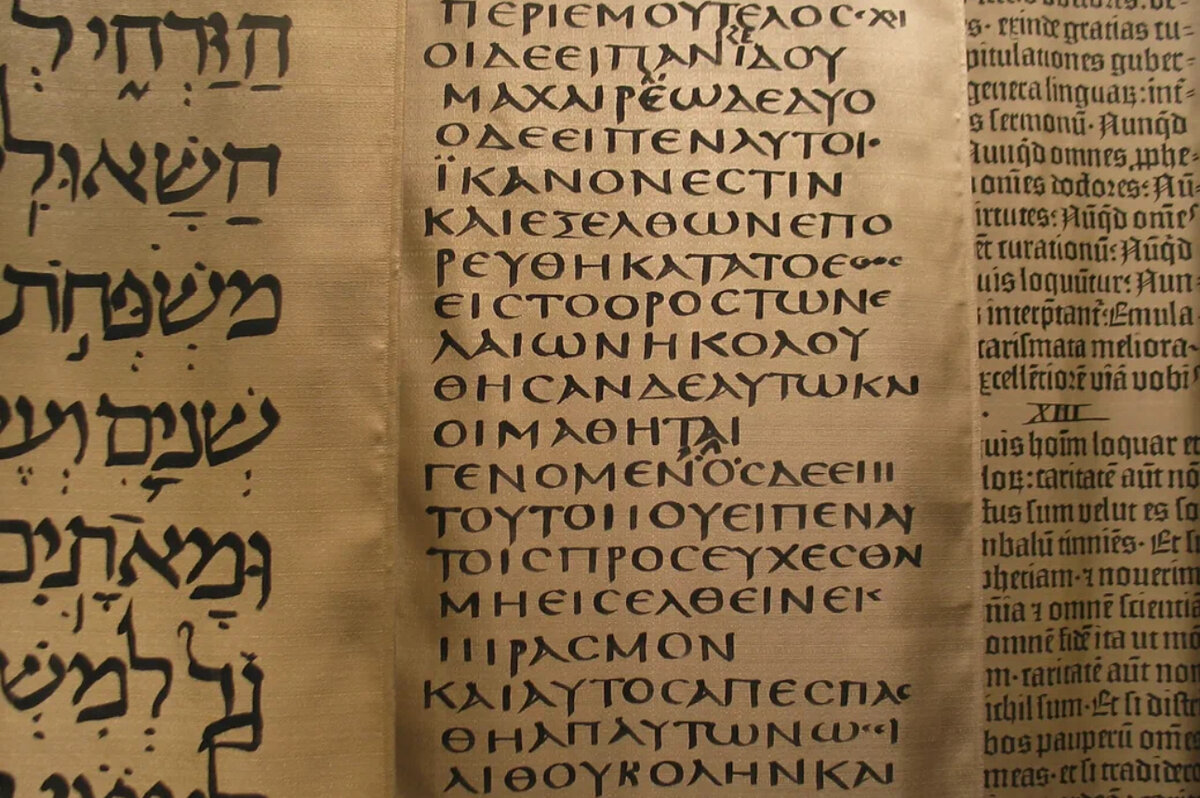 הַזַּרְחִ֑י לְ
הַשָּׁאוּלִ
מִשְׁפְּחֹ֣ת
שְׁנַ֧יִם וְעֶ
וּמָאתָ֖יִם
לְמִשְׁ
ΠΕΡΙΕΜΟΥΤΕΛΟΣ·ΕΧΙ
ΟΙΔΕΕΙΠΑΝΪΔΟΥ
ΜΑΧΑΙΡΕΩΔΕΔΥΟ
ΟΔΕΕΙΠΕΝΑΥΤΟΙ·
ΪΚΑΝΟΝΕϹΤΙΝ
ΚΑΙΕΞΕΛΘΩΝΕΠΟ
ΡΕΥΘΗΚΑΤΑΤΟΕΘΟϹ
ΕΙϹΤΟΟΡΟϹΤΩΝΕ
ΛΑΙΩΝΗΚΟΛΟΥ
ΘΗϹΑΝΔΕΑΥΤΩΚΑΙ
ΟΙΜΑΘΗΤΑΙ
ΓΕΝΟΜΕΝΟϹΔΕΕΠΙ
ΤΟΥΤΟΠΟΥΕΙΠΕΝΑΥ
ΤΟΙϹΠΡΟϹΕΥΧΕϹΘΑΙ
ΜΗΕΙϹΕΛΘΕΙΝΕΙϹ
ΠΙΡΑϹΜΟΝ
ΚΑΙΑΥΤΟϹΑΠΕϹΠΑϹ
ΘΗΑΠΑΥΤΩΝΩϹΕΙ
ΛΙΘΟΥΒΟΛΗΝΚΑΙ
s· exinde gratias cu⸗
pitulationes guber⸗
genera linguaꝝ: int̄⸗
s sermonū· Nunqͥd
Nunqͥd omnes ꝓphe⸗
omēs doctores: Nū⸗
irtutes: Nūqͥd omēs
ēt curationū: Nūqͥd
uis loquūtur: Nun⸗
interp̄tant̄: Emula
carismata meliora·
xcellētiorē viā vobis
XIII
uis hoīm loquar et
loꝝ: caritatē aūt nō
tus sum velut es so
mbalū tinniēs· Et si
phetiam· ⁊ nouerim
nīa ⁊ omnē scientiā
omnē fidē ita ut mo
m· caritatē aūt non
ichil sum· Et si distr
bos pauperū omēs
meas· et si tradidero